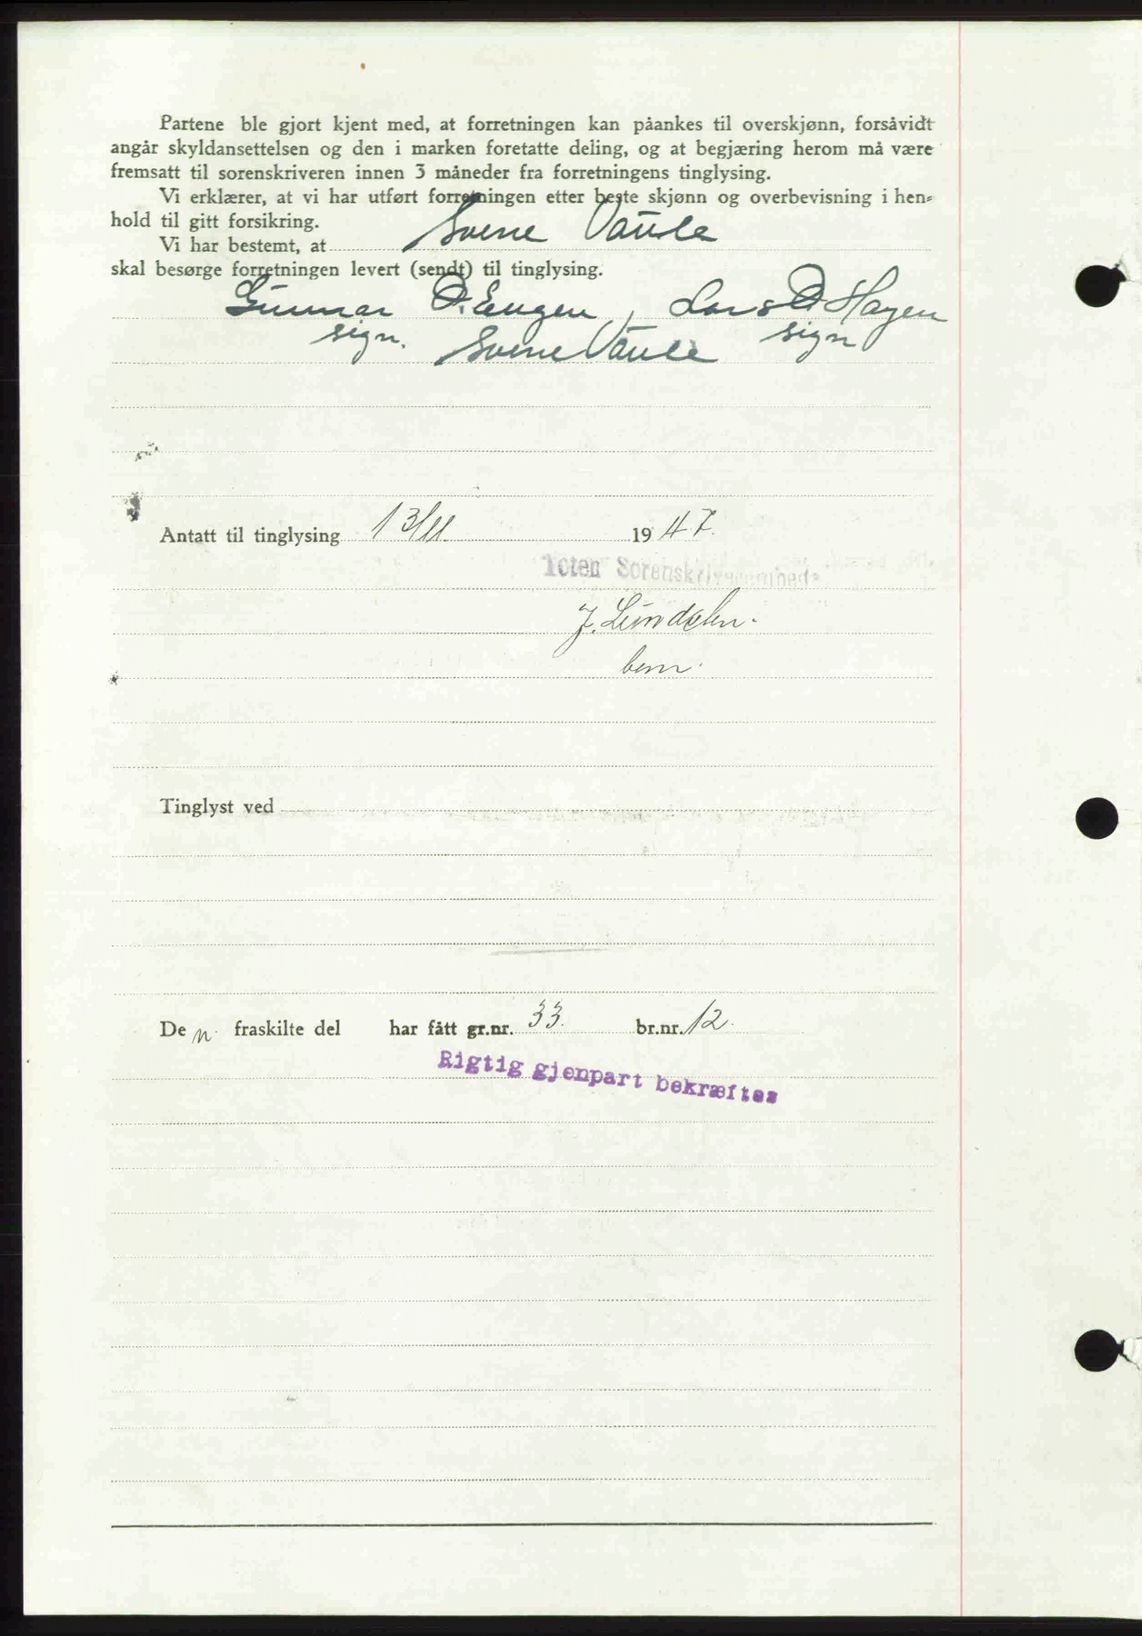 Partene ble gjort kjent med, at forretningen kan påankes til overskjønn, forsåvidt
angår skyldansettelsen og den i marken foretatte deling, og at begjæring herom må være
fremsatt til sorenskriveren innen 3 måneder fra forretningens tinglysing.
Vi erklærer, at vi har utført forretningen etter beste skjønn og overbevisning i hen-
hold til gitt forsikring.
Vi har bestemt, at Sverre Vaule
skal besørge forretningen levert (sendt) til tinglysing.
Gunnar Engen, Lars Hagen
sign. Sverre Vaule sign
Antatt til tinglysing 13/11 1947.
Toten Sorenskriverembede
J.
bem.
Tinglyst ved
De n fraskilte del har fått gr.nr. 33. br.nr. 12.
Rigtig gjenpart bekræftes